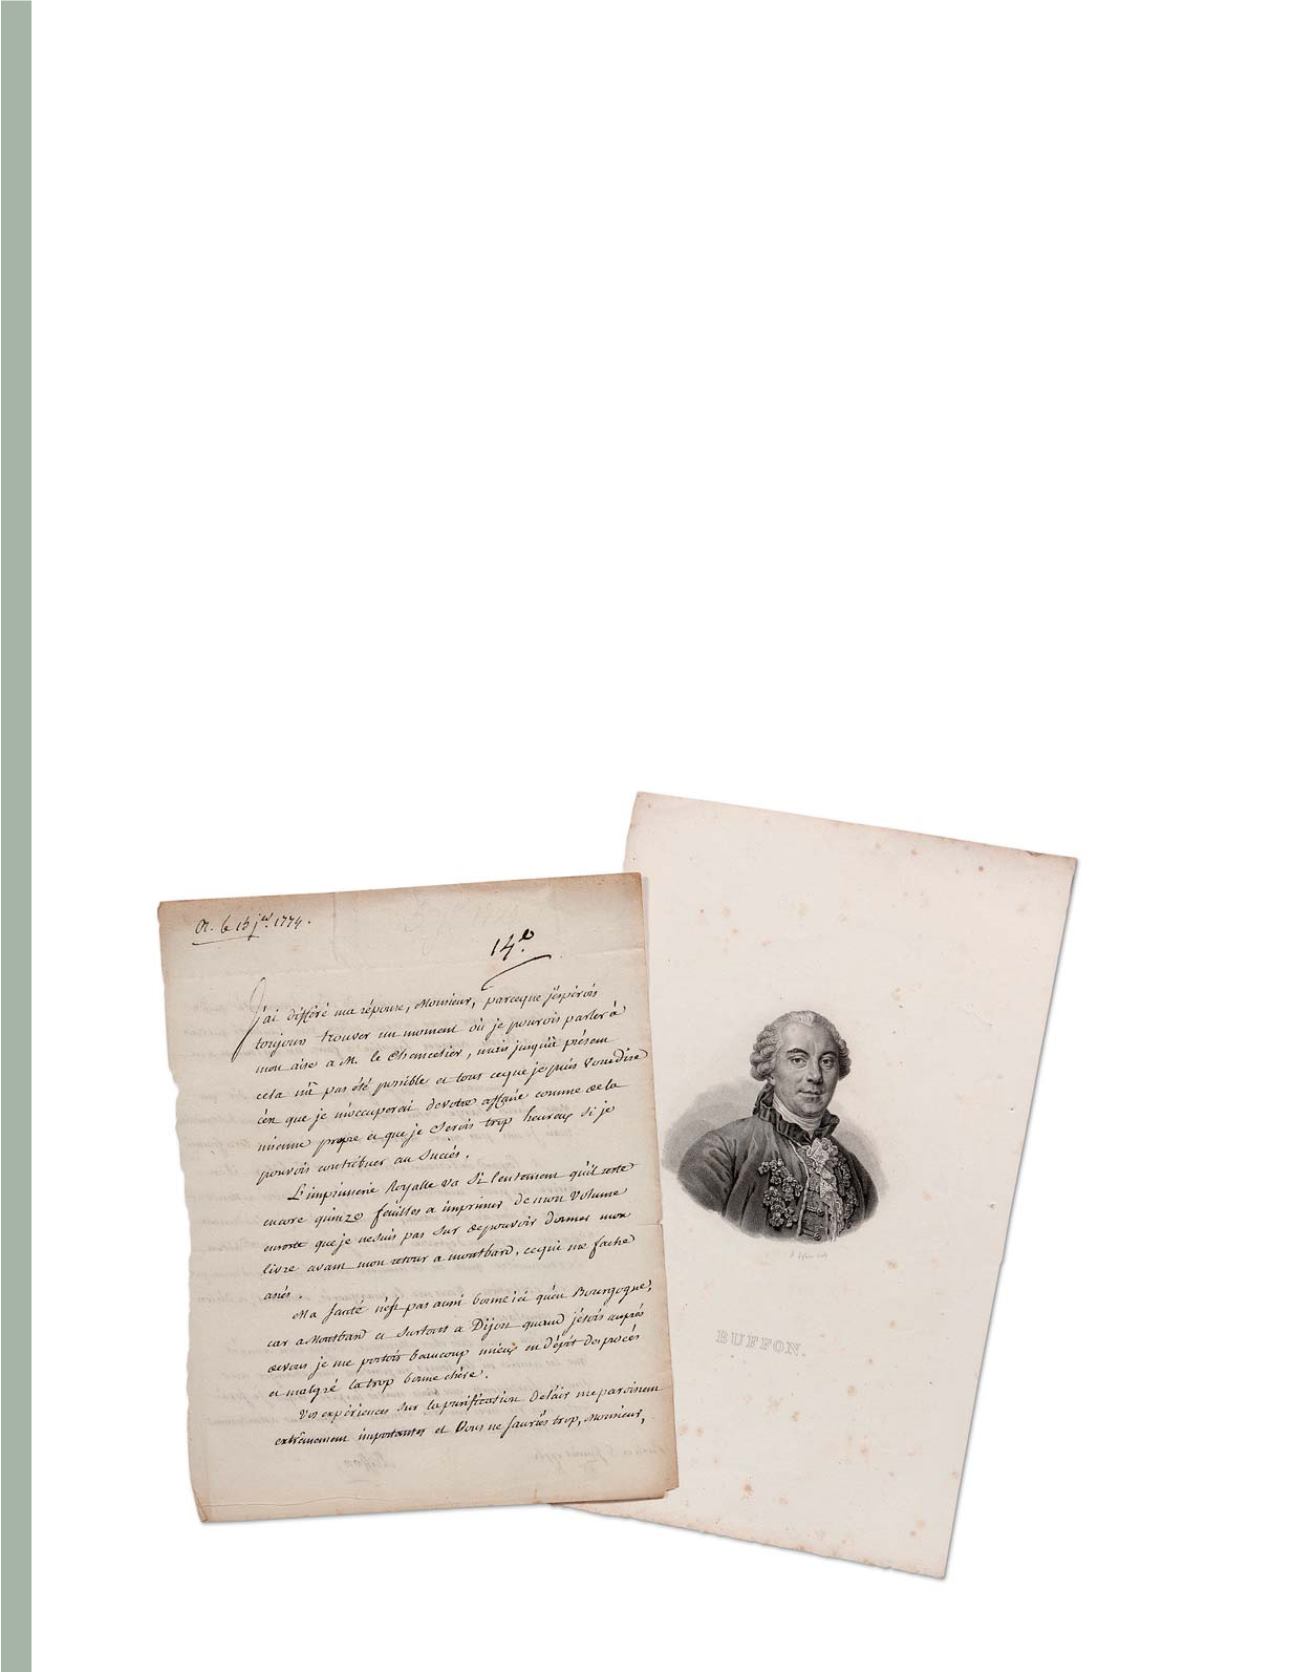 R. le 15 jer. 1774.
14.e
J'ai différé ma réponse, Monsieur, parceque j'espérois
toujours trouver un moment où je pourrois parler à
mon aise a M. le Chancelier, mais jusqu'à présent
cela n'a pas été possible et tout ceque je puis vous dire
c'en que je m'occuperai de votre affaire comme de la
mienne propre et que je serois trop heureux si je
pouvois contribuer au succés.
L'imprimerie Royalle va si lentement qu'il reste
encore quinze feuilles a imprimer de mon volume
ensorte que je ne suis pas sur de pouvoir donner mon
livre avant mon retour a montbard, cequi me fache
assés.
Ma santé n'est pas aussi bonne ici qu'en Bourgogne,
car a Montbard et surtout a Dijon quand j'étois auprés
de vous je me portois beaucoup mieux en dépit des procés
et malgré la trop bonne chére.
Vos expériences sur la purification de l'air me paroissent
extrêmement importantes et vous ne sauriés trop, Monsieur,
BUFFON.